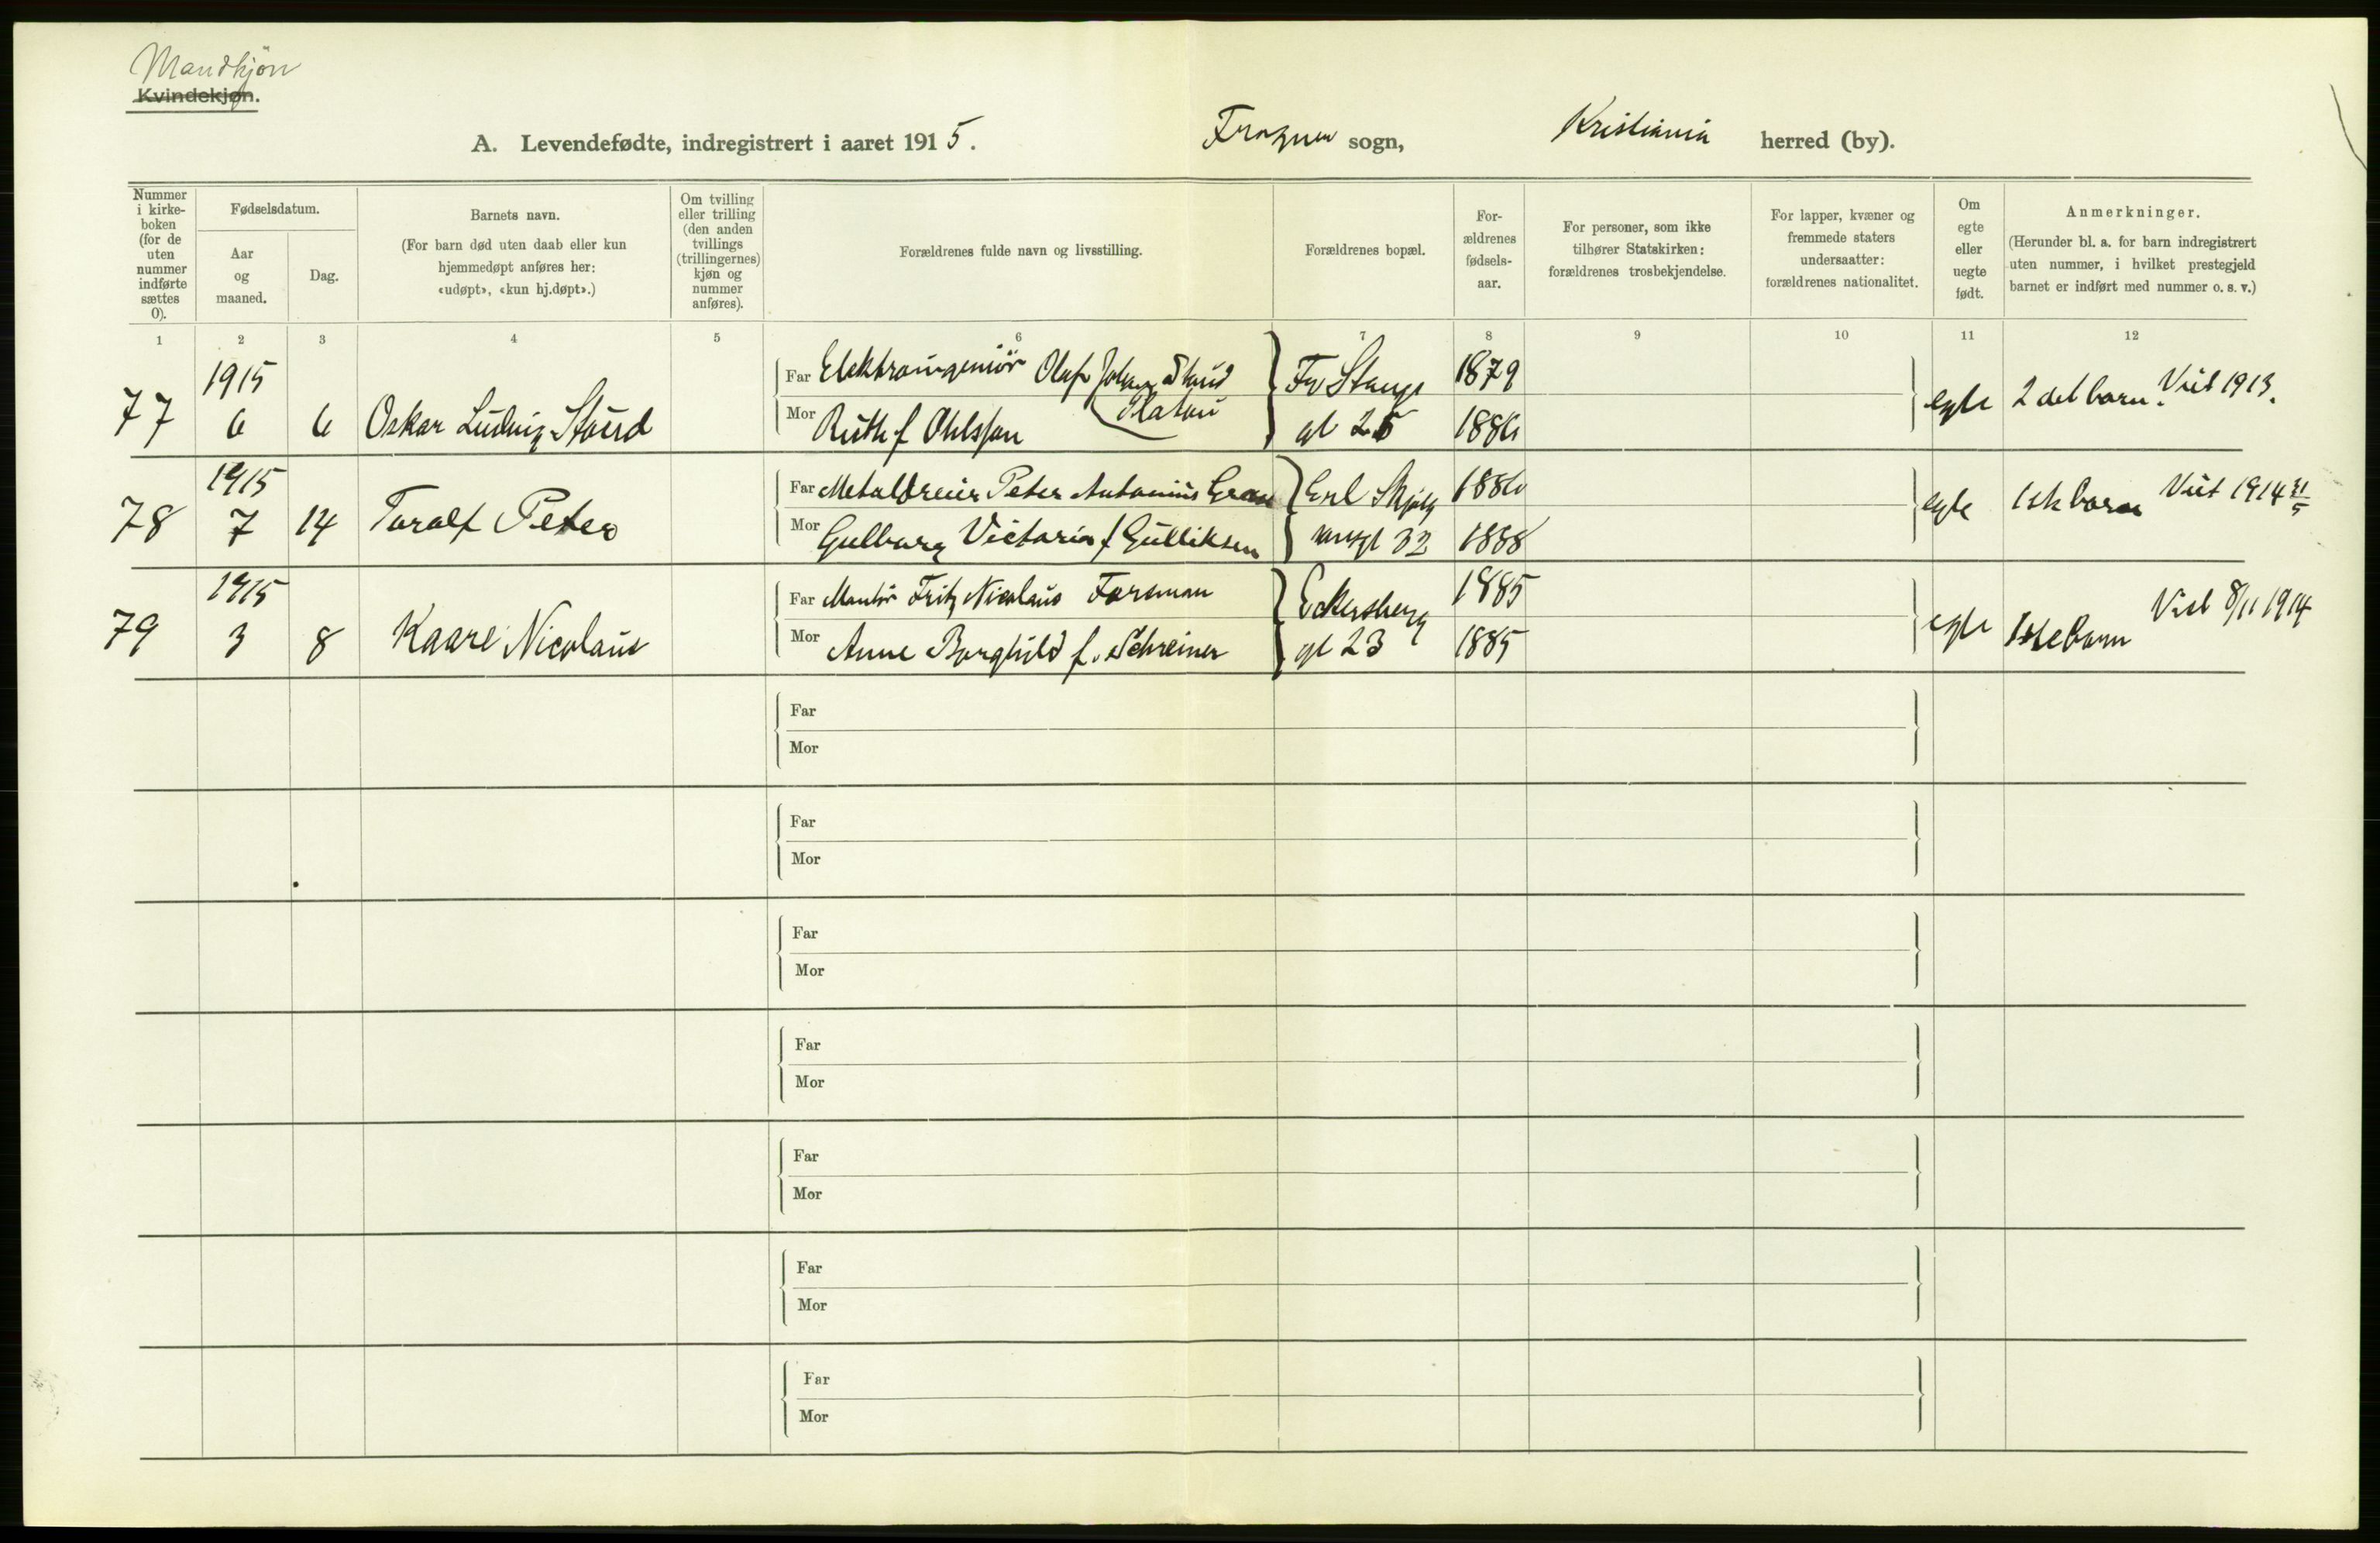 Mandkjøn
Kvindekjøn.
A. Levendefødte, indregistrert i aaret 1915. Frogner sogn, Kristiania herred (by).
Nummer i kirke-boken (for de uten nummer indførte sættes 0).
Fødselsdatum.
Aar og maaned.
Dag.
Barnets navn.
(For barn død uten daab eller kun hjemmedøpt anføres her: «udøpt», «kun hj.døpt».)
Om tvilling eller trilling (den anden tvillings (trillingernes) kjøn og nummer anføres).
Forældrenes fulde navn og livsstilling.
Forældrenes bopæl.
For-ældrenes fødsels-aar.
For personer, som ikke tilhører Statskirken: forældrenes trosbekjendelse.
For lapper, kvæner og fremmede staters undersaatter: forældrenes nationalitet.
Om egte eller uegte født.
Anmerkninger.
(Herunder bl. a. for barn indregistrert uten nummer, i hvilket prestegjeld barnet er indført med nummer o. s. v.)
1 2 3 4 5 6 7 8 9 10 11 12
1915 Far Elektroingeniør Olaf Johan Fr Stangs 1879
77 6 6 Oskar Ludvig Mor Ruth f Ohlsson gt 25 1886 egte 2det barn. Viet 1913.
1915 Far Metaldreier Peter Antonius Gran Erl Skjalg 1886
78 7 14 Toralf Peter Mor Gulborg Victoria f Gulliksen sonsgt 32 1888 egte 1ste barn Viet 1914 31/5
1915 Far Montør Fritz Nicolaus Forsman Eckersberg 1885
79 3 8 Kaare Nicolaus Mor Anne Borghild f. Schreiner gt 23 1885 egte 1ste barn Viet 8/11 1914
Far
Mor
Far
Mor
Far
Mor
Far
Mor
Far
Mor
Far
Mor
Far
Mor